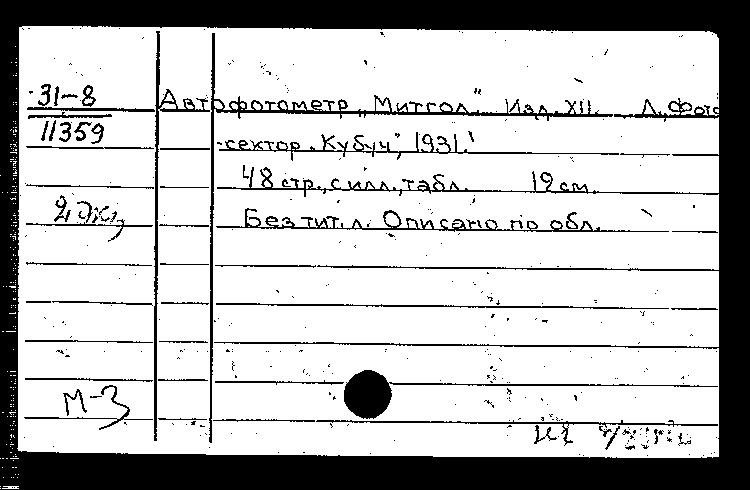 31-8
11359
2 экз
М-3
Автофотометр „Митгол." Изд. XII. Л., Фото
-сектор „Кубуч", 1931.
48 стр., с илл., табл. 19 см.
Без тит. л. Описано по обл.